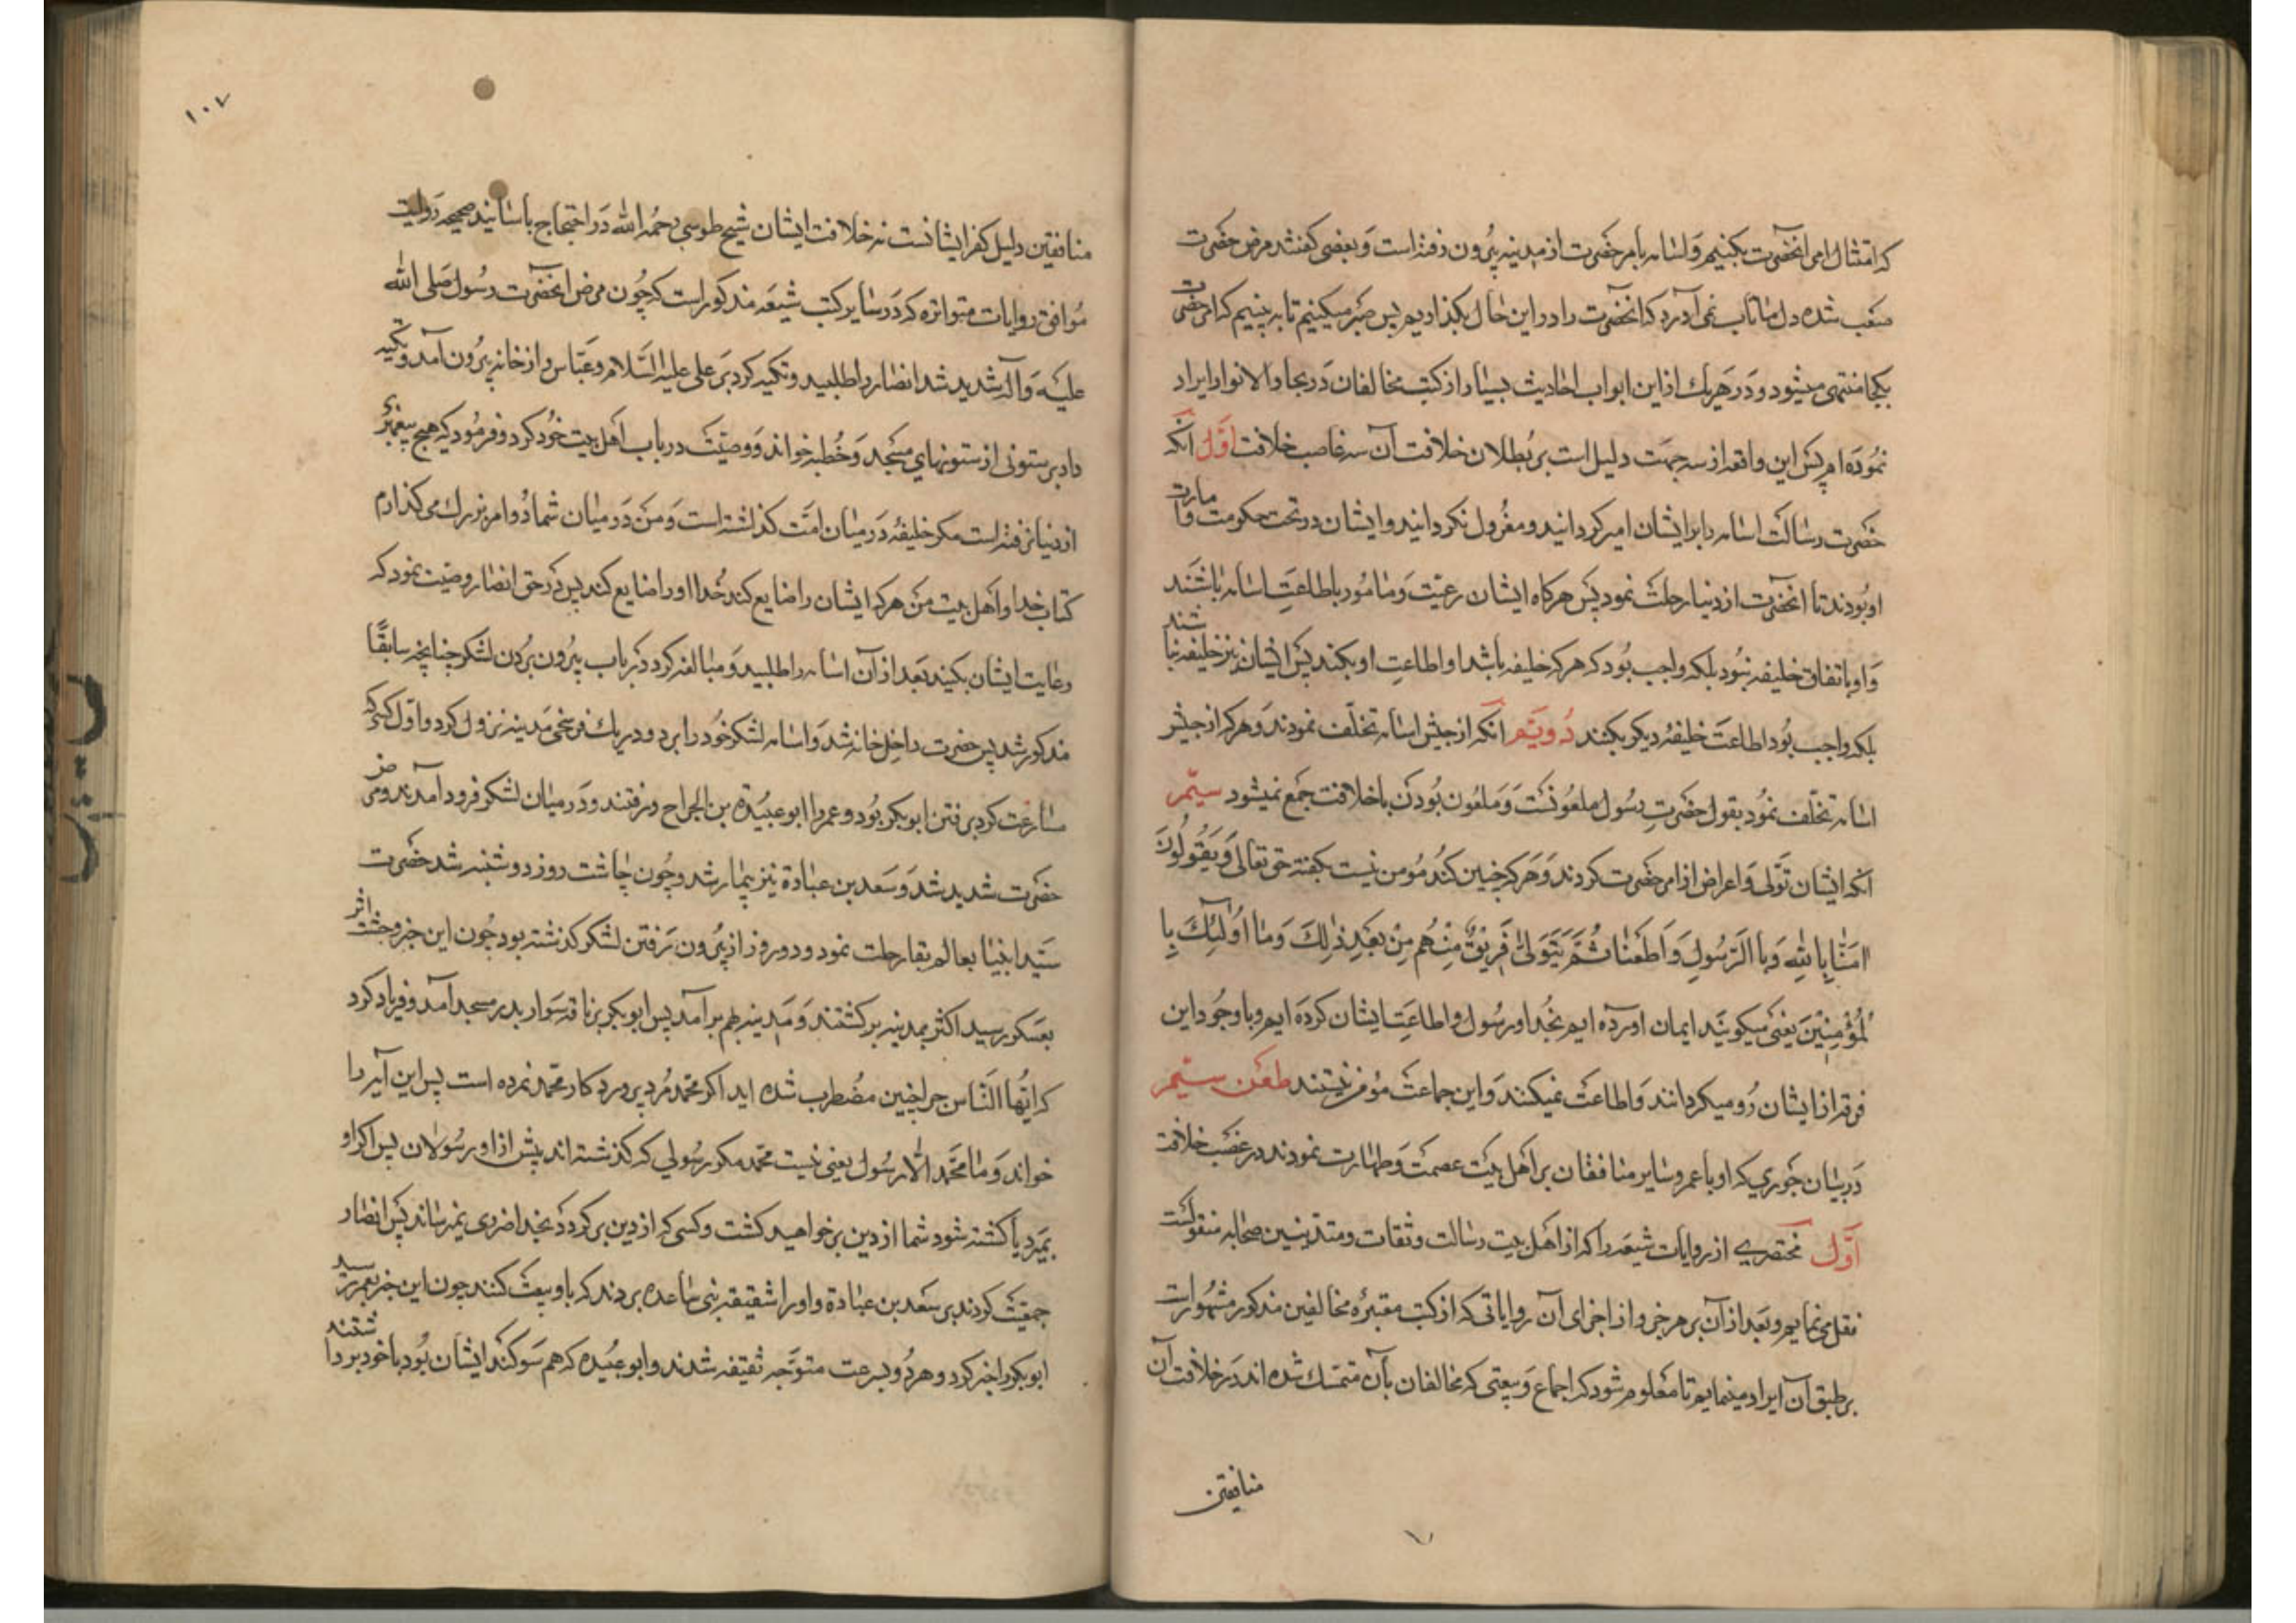 که امتثال امر انحضرت بکنیم و اسامه بامر حضرت از مدینه بیرون رفته است و بعضی کفتند مرض حضرت
صعب شده دل ما تاب نمی آورد که انحضرت را در این حال بکذاریم پس صبر میکنیم تا به بینیم که امر حضرت
بکجا منتهی میشود و در هر یك از این ابواب احادیث بسیار از کتب مخالفان در بحار الانوار ایراد
نموده ام پس این واقعه از سه جهت دلیل است بر بطلان خلافت آن سه غاصب خلافت اول انکه
حضرت رسالت اسامه را بر ایشان امیر کردانید و معزول نکردانید و ایشان در تحت حکومت و امارت
او بودند تا انحضرت از دنیا رحلت نمود پس هرکاه ایشان رعیت و مامور باطاعت اسامه باشند
و او باتفاق خلیفه نبود بلکه واجب بود که هر که خلیفه باشد او اطاعت او بکند پس ایشان نیز خلیفه نباشند
بلکه واجب بود اطاعت خلیفه دیکر بکنند دویم انکه از جیش اسامه تخلف نمودند و هر که از جیش
اسامه تخلف نمود بقول حضرت رسول ملعونست و ملعون بودن با خلافت جمع نمیشود سیم
انکه ایشان تولی و اعراض از امر حضرت کردند و هر که چنین کند مومن نیست بکفته حق تعالی وَيَقُولُونَ
امَنَّا بِاللهِ وَبِالرَّسُولِ وَاَطَعْنَا ثُمَّ يَتَوَلىٰ فَرِيقٌ مِنْهُم مِنْ بَعْدِ ذٰلِكَ وَمَا اُولئِكَ بِا
لْمُؤْمِنِينَ یعنی میکویند ایمان اورده ایم بخدا و رسول و اطاعت ایشان کرده ایم و با وجود این
فرقه از ایشان رو میکردانند و اطاعت نمیکنند و این جماعت مؤمن نیستند طعن سیم
در بیان جوری که او با عمر و سایر منافقان بر اهل بیت عصمت و طهارت نمودند در غصب خلافت
اول مختصری از روایات شیعه را که از اهل بیت رسالت و ثقات و متدینین صحابه منقولست
نقل می نمایم و بعد از آن بر هر جزو از اجزای آن روایاتی که از کتب معتبره مخالفین مذکور مشهور است
بر طبق آن ایراد مینمایم تا معلوم شود که اجماع و بیعتی که مخالفان بآن متمسك شده اند در خلافت آن
منافقین
منافقین دلیل کفر ایشانست نه خلافت ایشان شیخ طوسی رحمه الله در احتجاج باسانید صحیحه روایت
موافق روایات متواتره که در سایر کتب شیعه مذکور است که چون مرض انحضرت رسول صلی الله
علیه و آله شدید شد انصار را طلبید و تکیه کرد بر علی علیه السلام و عباس و از خانه بیرون آمد و تکیه
داد بر ستونی از ستونهای مسجد و خطبه خواند و وصیت در باب اهل بیت خود کرد و فرمود که هیچ پیغمبری
از دنیا نرفته است مکر خلیفه در میان امت کذاشته است و من در میان شما دو امر بزرك می کذارم
کتاب خدا و اهل بیت من هر که ایشان را ضایع کند خدا او را ضایع کند پس در حق انصار وصیت نمود که
رعایت ایشان بکنید بعد از آن اسامه را طلبید و مبالغه کرد در باب بیرون بردن لشکر چنانچه سابقًا
مذکور شد پس حضرت داخل خانه شد و اسامه لشکر خود را برد و در یك فرسخی مدینه نزول کرد و اول کسی که
مسارعت کرد برفتن ابو بکر بود و عمر را ابو عبیده بن الجراح و رفتند و در میان لشکر فرود آمدند و مرض
حضرت شدید شد و سعد بن عبادة نیز بیمار شد و چون چاشت روز دوشنبه شد حضرت
سید انبیا بعالم بقا رحلت نمود و دو روز از بیرون رفتن لشکر کذشته بود چون این خبر وحشت اثر
بعسکر رسید اکثر بمدینه برکشتند و مدینه بهم برآمد پس ابو بکر بر ناقه سوار بدر مسجد آمد و فریاد کرد
که ایها الناس چرا چنین مضطرب شده اید اکر محمد مرد پروردکار محمد نمرده است پس این آیه را
خواند و ما محمد الا رسول یعنی نیست محمد مکر رسولی که کذشته اند پیش از او رسولان پس اکر او
بمیرد یا کشته شود شما از دین بر خواهید کشت و کسی که از دین بر کردد بخدا ضرری نمیرساند پس انصار
جمعیت کردند بر سعد بن عبادة و او را بسقیفه بنی ساعده بردند که باو بیعت کنند چون این خبر بعمر رسید
ابو بکر را خبر کرد و هر دو بسرعت متوجه ثقیفه شدند و ابو عبیده که هم سوکند ایشان بود با خود برداشتند
۱۰۷